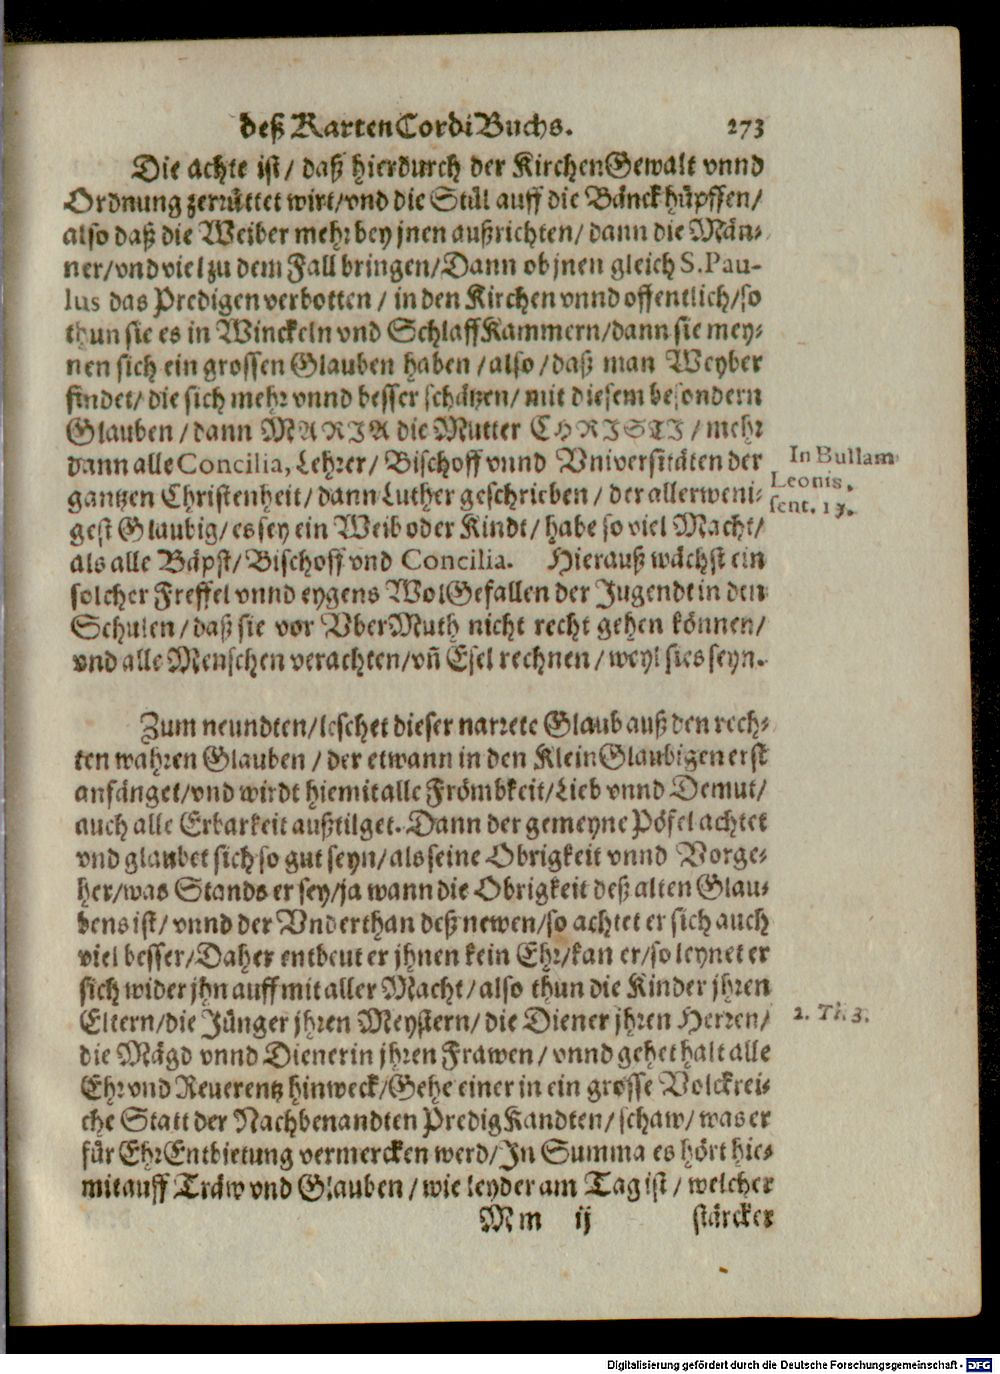 deß KartenCordiBuchs. 273
Die achte ist/ daß hierdurch der KirchenGewalt vnnd
Ordnung zerrüttet wirt/vnd die Stül auff die Bänck hüpffen/
also daß die Weiber mehr bey jnen außrichten/ dann die Män-
ner/vnd viel zu dem Fall bringen/Dann ob jnen gleich S. Pau-
lus das Predigen verbotten / in den Kirchen vnnd offentlich/so
thun sie es in Winckeln vnd SchlaffKammern/dann sie mey-
nen sich ein grossen Glauben haben /also /daß man Weyber
findet/ die sich mehr vnnd besser schätzen/ mit diesem besondern
Glauben /dann MARIA die Mutter CHRISTI /mehr
dann alle Concilia, Lehrer/ Bischoff vnnd Vniversitäten der
gantzen Christenheit/ dann Luther geschrieben / der allerweni-
gest Glaubig/ es sey ein Weib oder Kindt/ habe so viel Macht/
als alle Bäpst/ Bischoff vnd Concilia. Hierauß wächst ein
solcher Freffel vnnd eygens WolGefallen der Jugendt in den
Schulen/ daß sie vor VberMuth nicht recht gehen können/
vnd alle Menschen verachten/vñ Esel rechnen / weyl sies seyn.
In Bullam
Leonis.
sent. 13.
Zum neundten/leschet dieser narrete Glaub auß den rech-
ten wahren Glauben / der etwann in den KleinGlaubigen erst
anfänget/vnd wirdt hiemit alle Frömbkeit/Lieb vnnd Demut/
auch alle Erbarkeit außtilget. Dann der gemeyne Pöfel achtet
vnd glaubet sich so gut seyn/ als seine Obrigkeit vnnd Vorge-
her/was Stands er sey/ja wann die Obrigkeit deß alten Glau-
bens ist/ vnnd der Vnderthan deß newen/so achtet er sich auch
viel besser/Daher entbeut er jhnen kein Ehr/kan er/so leynet er
sich wider jhn auff mit aller Macht/ also thun die Kinder jhren
Eltern/die Jünger jhren Meystern/ die Diener jhren Herren/
die Mägd vnnd Dienerin jhren Frawen/ vnnd gehet halt alle
Ehr vnd Reuerentz hinweck/Gehe einer in ein grosse Volckrei-
che Statt der Nachbenandten PredigKandten/ schaw/ was er
für EhrEntbietung vermercken werd/In Summa es hört hie-
mit auff Träw vnd Glauben / wie leyder am Tag ist / welcher
2. Ti. 3.
Mm ij stärcker
Digitalisierung gefördert durch die Deutsche Forschungsgemeinschaft - DFG